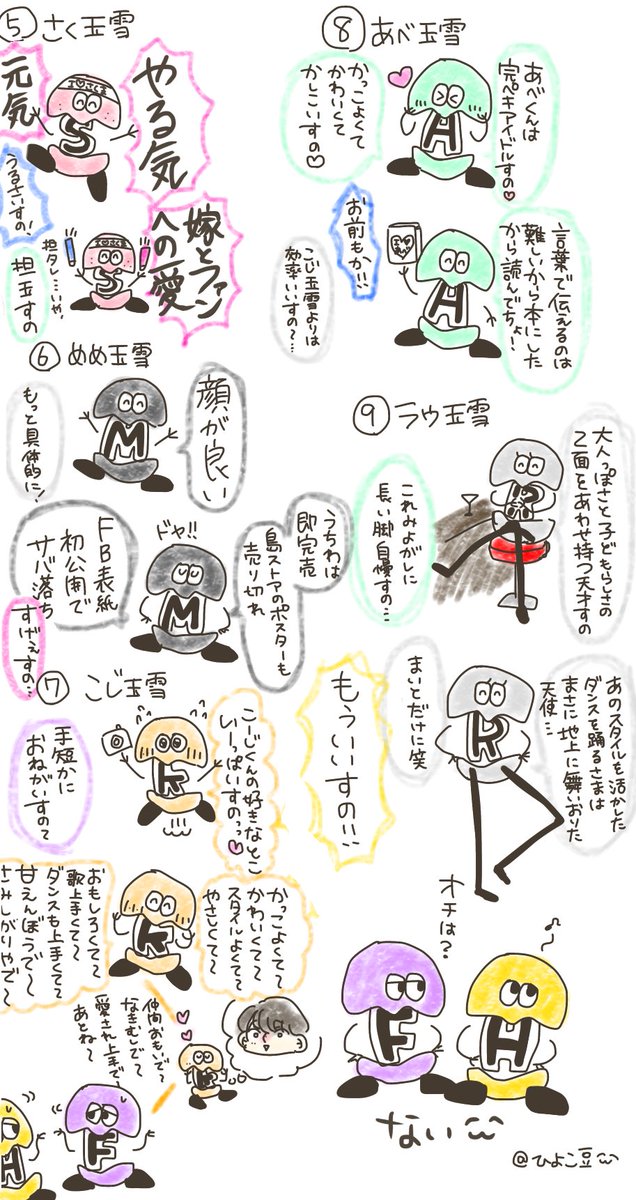 ⑤さく玉雪
やる気
元気
I♡さくま
S
うるさいすの!
嫁とファン
への愛
S
担タレ…いや、
担玉すの
⑥めめ玉雪
顔が良い
M
もっと具体的に!
うちわは
即完売
島ストアのポスターも
売り切れ
ドヤ!!
M
FB表紙
初公開で
サバ落ち
すげぇすの…
⑦こじ玉雪
こーじくんの好きなとこ
いーっぱいすのっっ♡
K
手短かに
おねがいすのて
かっこよくて〜
かわいくて〜
スタイルよくて〜
やさしくて〜
K
おもしろくて〜
歌上手くて〜
ダンスも上手くて〜
甘えんぼうで〜
さみしがりやで〜
仲間おもいで〜
なきむしで〜
愛され上手で〜
あとね〜
K
F
H
⑧あべ玉雪
あべくんは
完ペキアイドルすの♡
H
かっこよくて
かわいくて
かしこいすの♡
言葉で伝えるのは
難しいから本にした
から読んでちょ!
H
お前もか!!!
こじ玉雪よりは
効率いいすの〜…
⑨ラウ玉雪
大人っぽさと子どもらしさの
2面をあわせ持つ天才すの
R
これみよがしに
長い脚自慢すの…
あのスタイルを活かした
ダンスを踊るさまは
まさに地上に舞いおりた
天使…
R
まいとだけに笑
もういいすの!!
オチは?
F
H
ない
@ひよこ豆